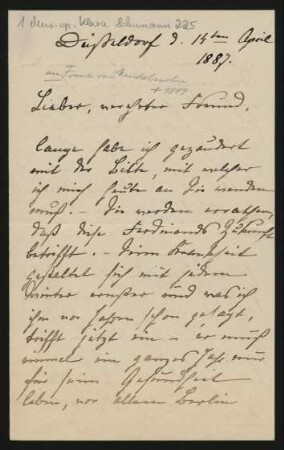 1 Mus. ep. Klara Schumann 225
Düsseldorf d. 14ten April
1887.
an Franz von Mendelssohn
† 1889
Lieber, verehrter Freund,
lange habe ich gezaudert
mit der Bitte, mit welcher
ich mich heute an Sie wenden
muß. – Sie werden errathen,
daß diese Ferdinands Zukunft
betrifft. – Seine Krankheit
gestaltet sich mit jedem
Winter ernster und was ich
ihm vor Jahren schon gesagt,
trifft jetzt ein – er muß
einmal ein ganzes Jahr nur
für seine Gesundheit
leben, vor allem Berlin